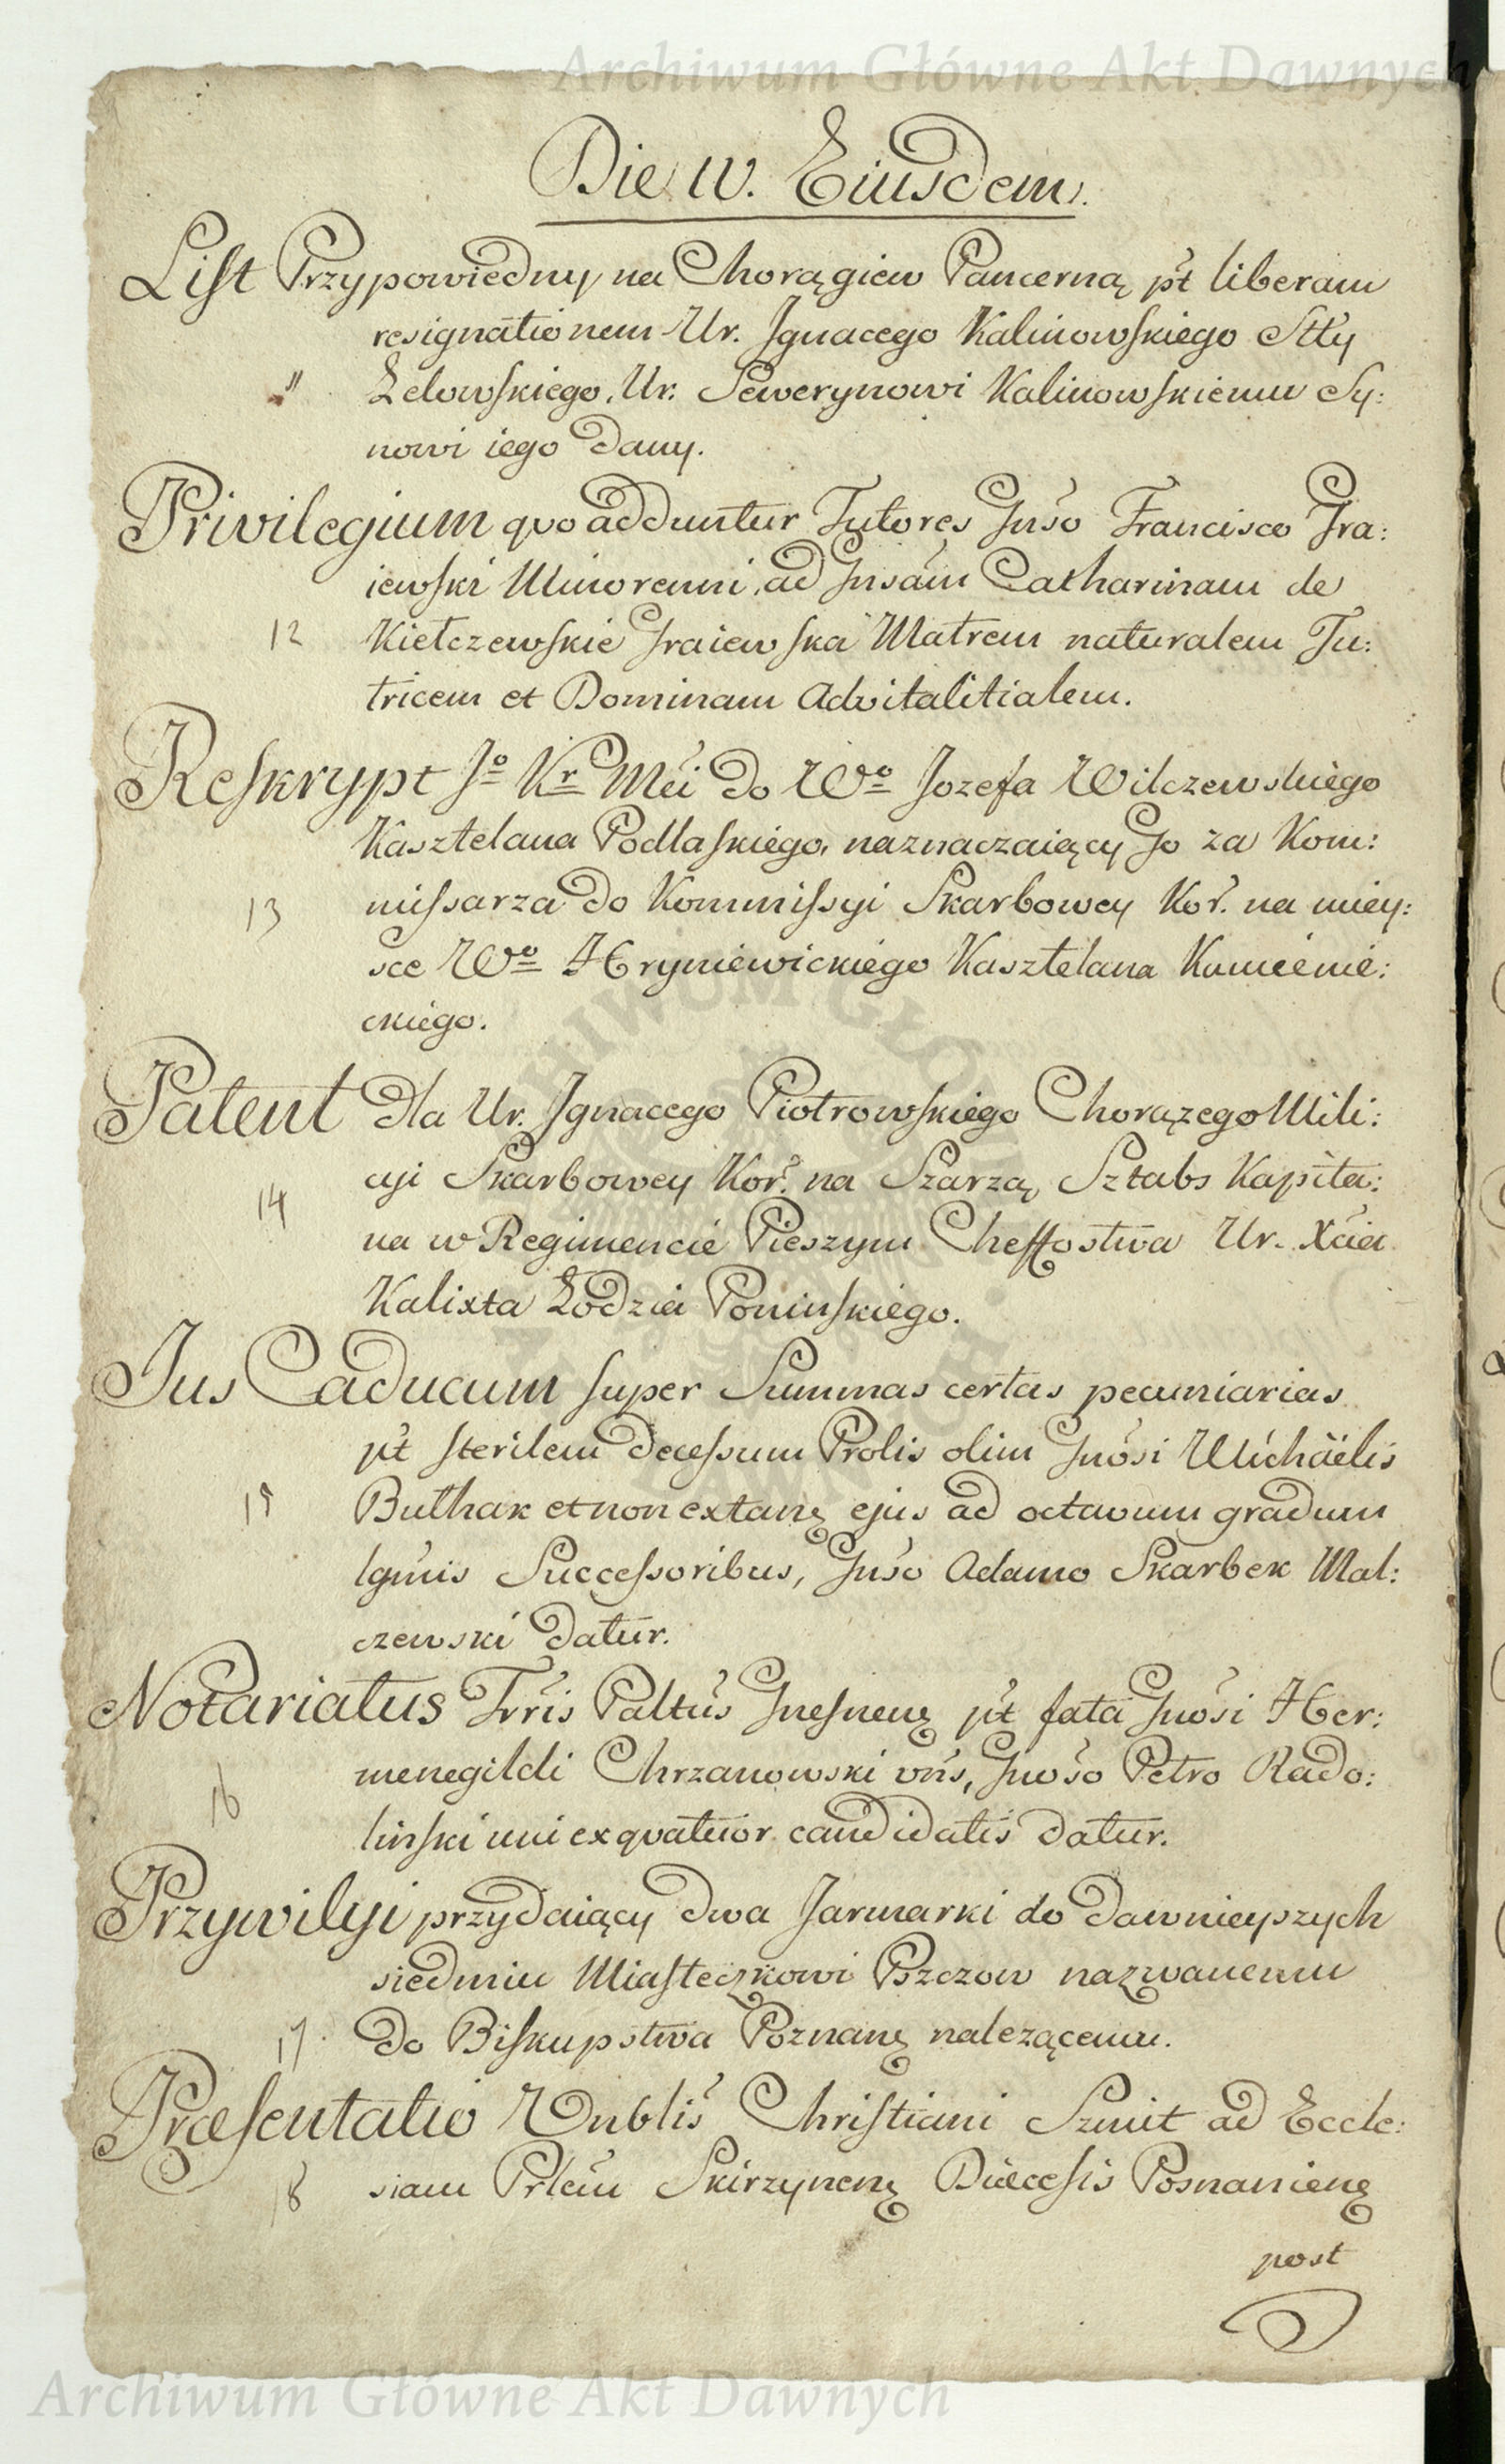 Archiwum Główne Akt Dawnych
Die IV. Eiusdem.
List Przypowiedny na Chorągiew Pancerną pt liberam
resignationem Ur. Ignacego Kalinowskiego Stty
11 Żelowskiego, Ur. Sewerynowi Kalinowskiemu Sy:
nowi iego dany.
Privilegium quo adduntur Tutores Gnso Francisco Gra:
iewski Minorenni, ad Gnsam Catharinam de
12 Kiełczewskie Graiewska Matrem naturalem Tu:
tricem et Dominam Advitalitialem.
Reskrypt Jo Kr Mci do Wo Jozefa Wilczewskiego
Kasztelana Podlaskiego, naznaczaiący Go za Kom:
13 missarza do Kommissyi Skarbowey Kor. na miey:
sce Wo Hryniewickiego Kasztelana Kamienie:
ckiego.
Patent dla Ur. Ignacego Piotrowskiego Chorązego Mili:
cyi Skarbowey Kor. na Szarzą Sztabs Kapita:
14 na w Regimencie Pieszym Cheffostwa Ur. Xcia
Kalixta Łodzia Poninskiego.
Jus Caducum super Summas certas pecuniarias
pt sterilem decessum Prolis olim Gnosi Michäelis
15 Bułhak et non extanę ejus ad octavum gradum
lgmis Successoribus, Gnso Adamo Skarbek Mal:
czewski datur.
Notariatus Trris Paltus Gnesnenę pt fata Gnosi Her:
menegildi Chrzanowski vns, Gnoso Petro Rado:
16 linski uni ex quatuor candidatis datur.
Przywilyi przydaiący dwa Jarmarki do dawnieyszych
siedmiu Miasteczkowi Pszczow nazwanemu
17. do Biskupstwa Poznanę nalezącemu.
Præsentatio Vnblis Christiani Szmit ad Eccle:
18 siam Prlem Skirzynenę Diæcesis Posnanienę
post
Archiwum Główne Akt Dawnych